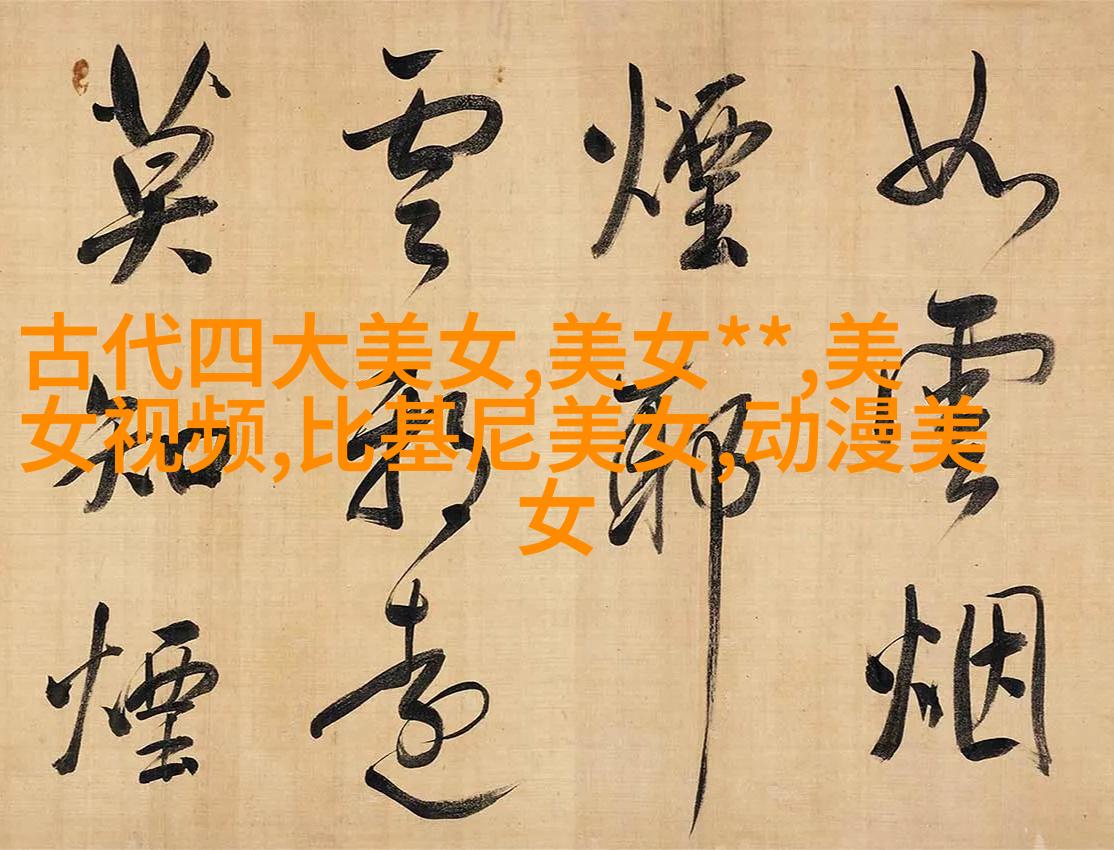 如雲烟
煙耶
雲耶遠
莫知煙
古代四大美女,美女** ,美
女视频,比基尼美女,动漫美
女